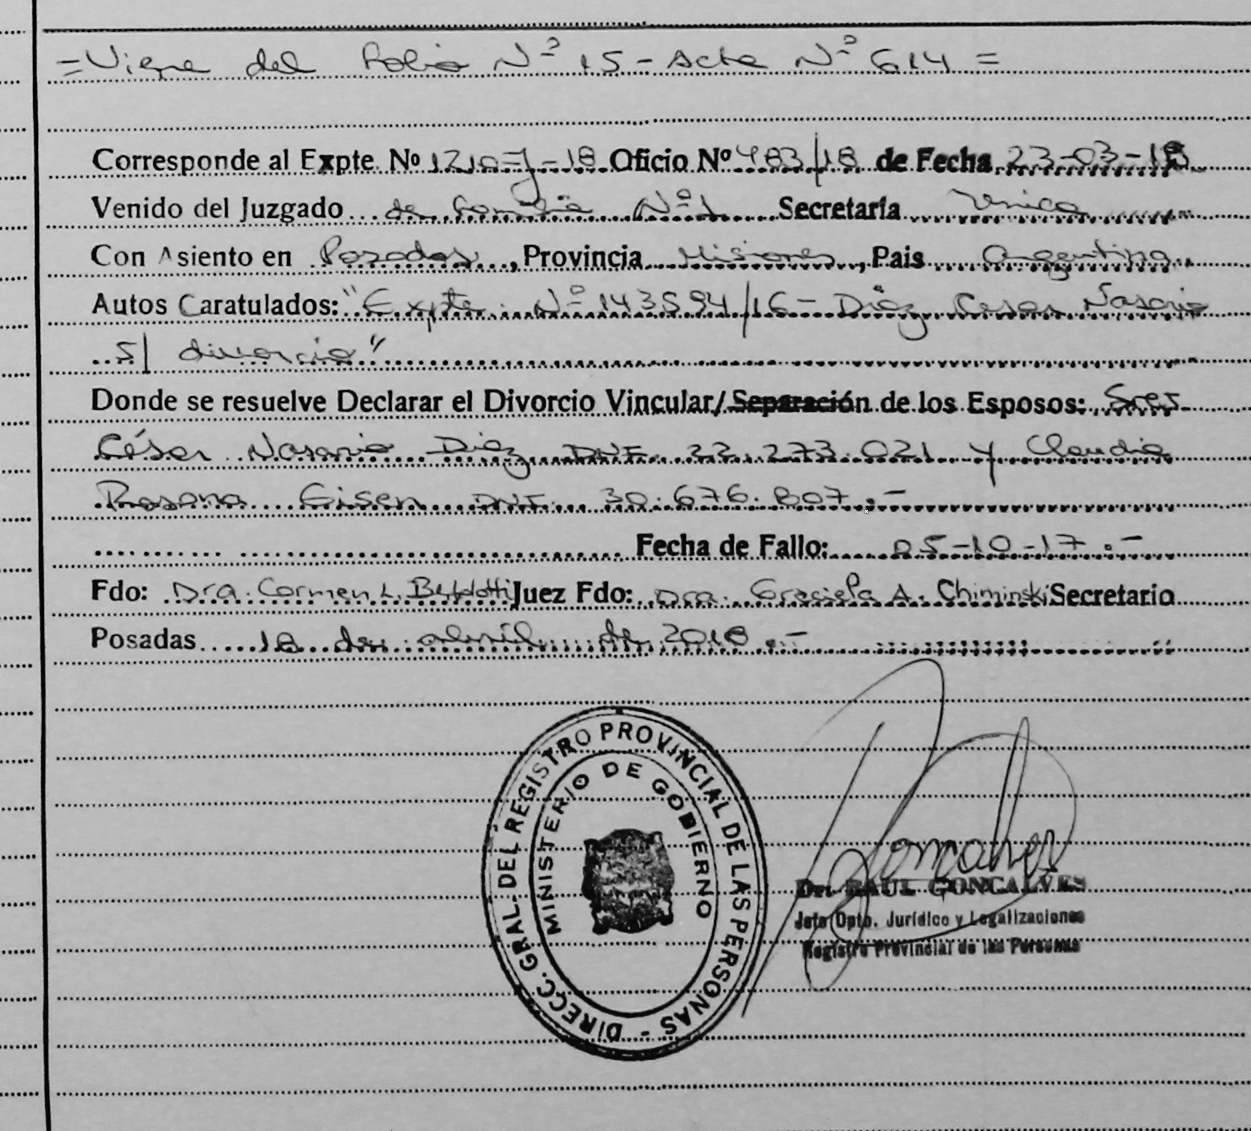 =Viene del Folio Nº 15 - Acta Nº 614 =
Corresponde al Expte. Nº 1210-J-18 Oficio Nº 483/18 de Fecha 23-03-18
Venido del Juzgado de Familia Nº1 Secretaría Única
Con Asiento en Posadas, Provincia Misiones, Pais Argentina.
Autos Caratulados: "Expte. Nº 143594/16 - Diez Cesar Nasario
S/ divorcio"
Donde se resuelve Declarar el Divorcio Vincular/Separación de los Esposos: Sres
César Nasario Diez DNI. 22.273.021 y Claudia
Rosana Eisen DNI. 30.676.807.-
Fecha de Fallo: 05-10-17.-
Fdo: Dra. Carmen L. Juez Fdo: Dra. Graciela A. Chiminski Secretario
Posadas 18 de abril de 2018.-
DIRECC. GRAL. DEL REGISTRO PROVINCIAL DE LAS PERSONAS -
MINISTERIO DE GOBIERNO
Dr. RAUL GONCALVES
Jefe Dpto. Jurídico y Legalizaciones
Registro Provincial de las Personas